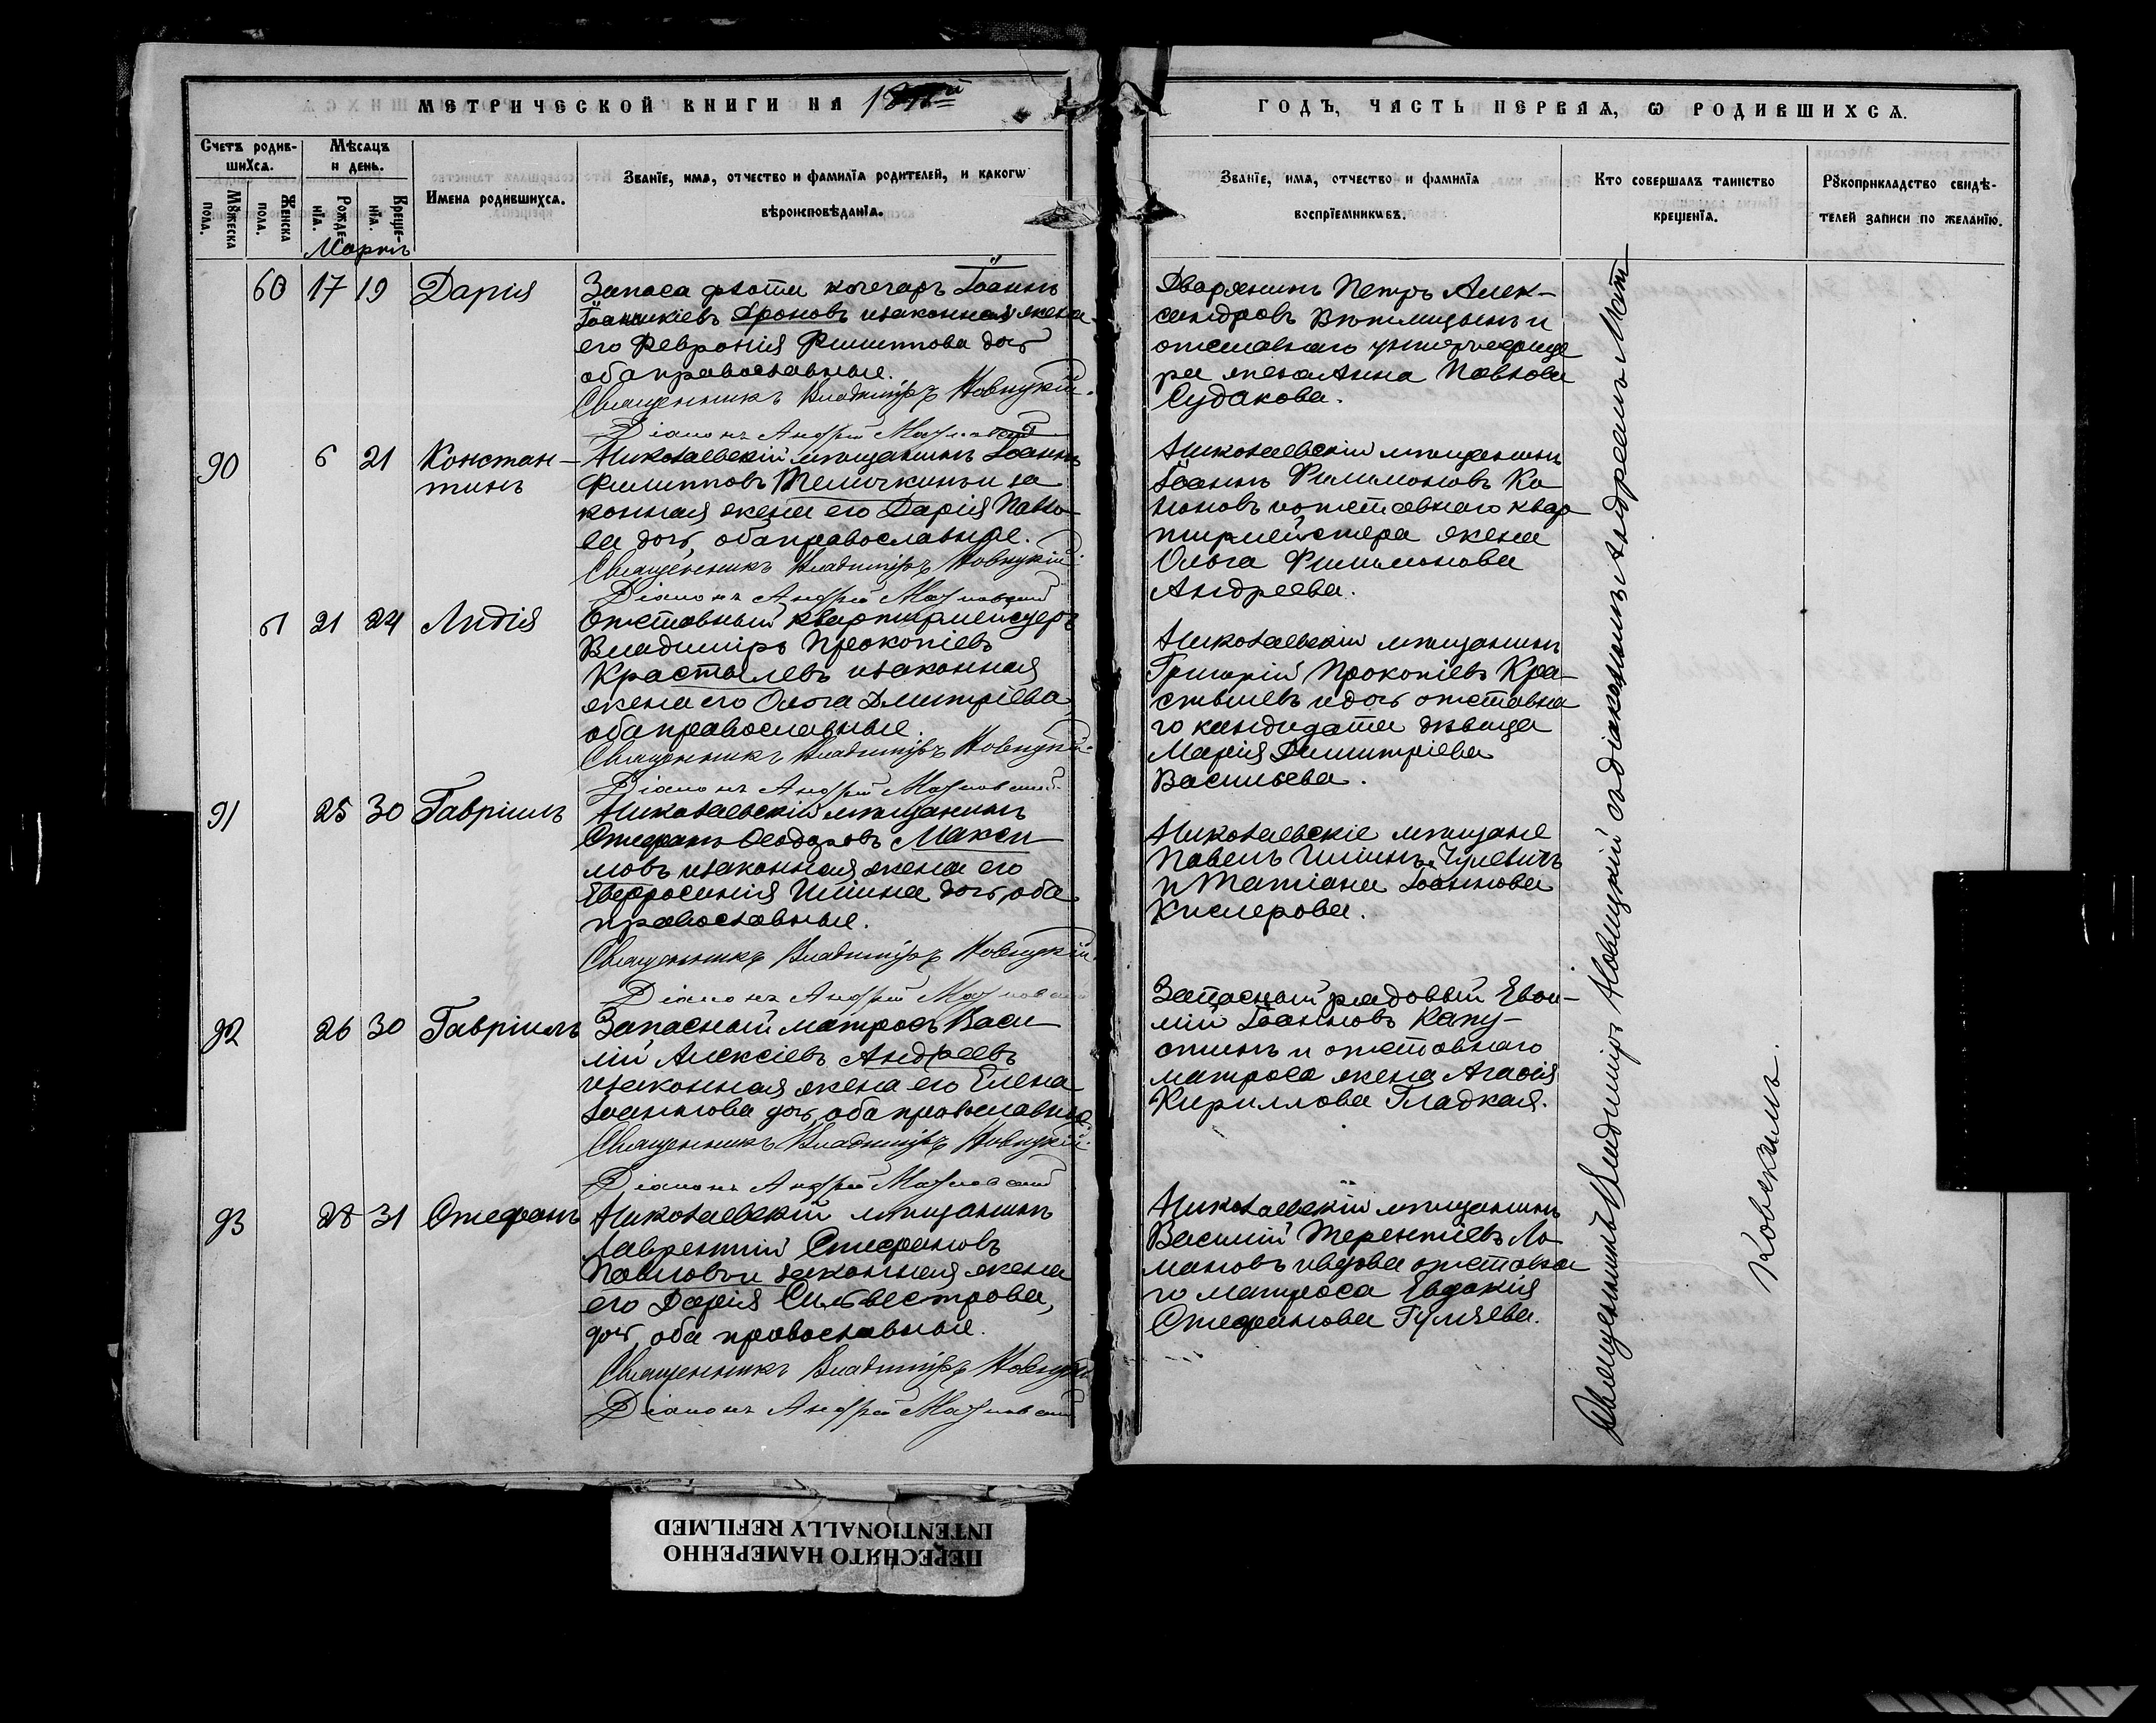 МЕТРИЧЕСКОЙ КНИГИ НА
ГОДЪ, ЧАСТЬ ПЕРВАЯ, Ѡ РОДИВШИХСѦ.
Счетъ родив-
шихсѧ.
Мѣсѧцъ
и день.
Мꙋжеска
пола.
Женска
пола.
Рожде-
нїѧ.
Креще-
нїѧ.
Имена родившихсѧ.
Званїе, имѧ, отчество и фамилїѧ родителей, и какогѡ
вѣроисповѣданїѧ.
Званїе, имѧ, отчество и фамилїѧ
воспрїемникѡвъ.
Кто совершалъ таинство
крещенїѧ.
Рꙋкоприкладство свидѣ-
телей записи по желанїю.
Мартъ
60 17 19 Дарія
Запаса флота кочегаръ Іоаннъ
Іоанникіевъ Ароновъ и законная жена
его Февронія Филиппова дочь
оба православные.
Священникъ Владиміръ Новицкій.
Діаконъ Андрей
Дворянинъ Петръ Алек-
сандровъ и
отставнаго унтеръ офице
ра жена Анна Павлова
Судакова.
90 6 21 Констан-
тинъ
Николаевскій мѣщанинъ Іоаннъ
Филипповъ Телички­нъ и за
конная жена его Дарія Павло-
ва дочь, оба православные.
Священникъ Владиміръ Новицкій.
Діаконъ Андрей
Николаевскій мѣщанинъ
Іоаннъ Филимоновъ Ка
поновъ и отставнаго квар
тирмейстера жена
Ольга Филимонова
Андреева.
61 21 24 Лидія
Отставный квартирмейстеръ
Владиміръ Прокопіевъ
Крастылевъ и законная
жена его Ольга Дмитріева,
оба православные.
Священникъ Владиміръ Новицкій.
Діаконъ Андрей
Николаевскій мѣщанинъ
Григорій Прокопіевъ Кра-
стылевъ и дочь отставна
го кандидата дѣвица
Марія Димитріева
Васильева.
91 25 30 Гавріилъ
Николаевскій мѣщанинъ
Стефанъ Ѳеодоровъ Макси
мовъ и законная жена его
Евфросинія Ильина дочь, оба
православные.
Священникъ Владиміръ Новицкій.
Діаконъ Андрей
Николаевскіе мѣщане
Павелъ Ильинъ
и Татіана Іоаннова
92 26 30 Гавріилъ
Запасный матросъ Васи
лій Алексіевъ Андреевъ
и законная жена его Елена
Іоаннова дочь, оба православные
Священникъ Владиміръ Новицкій.
Діаконъ Андрей
Запасный рядовый Евѳи-
мій Іоанновъ Капу-
стинъ и отставнаго
матроса жена Агаѳія
Кириллова Гладкая.
93 28 31 Стефанъ
Николаевскій мѣщанинъ
Лаврентій Стефановъ
Павловъ и законная жена
его Дарія Сильвестрова,
дочь, оба православные.
Священникъ Владиміръ Новицкій
Діаконъ Андрей
Николаевскій мѣщанинъ
Василій Терентіевъ Ло
мановъ и вдова отставна
го матроса Евдокія
Стефанова Гуляева.
Священникъ Владиміръ Новицкій съ діакономъ Андреемъ
ПЕРЕСНЯТО НАМЕРЕННО
INTENTIONALLY REFILMED